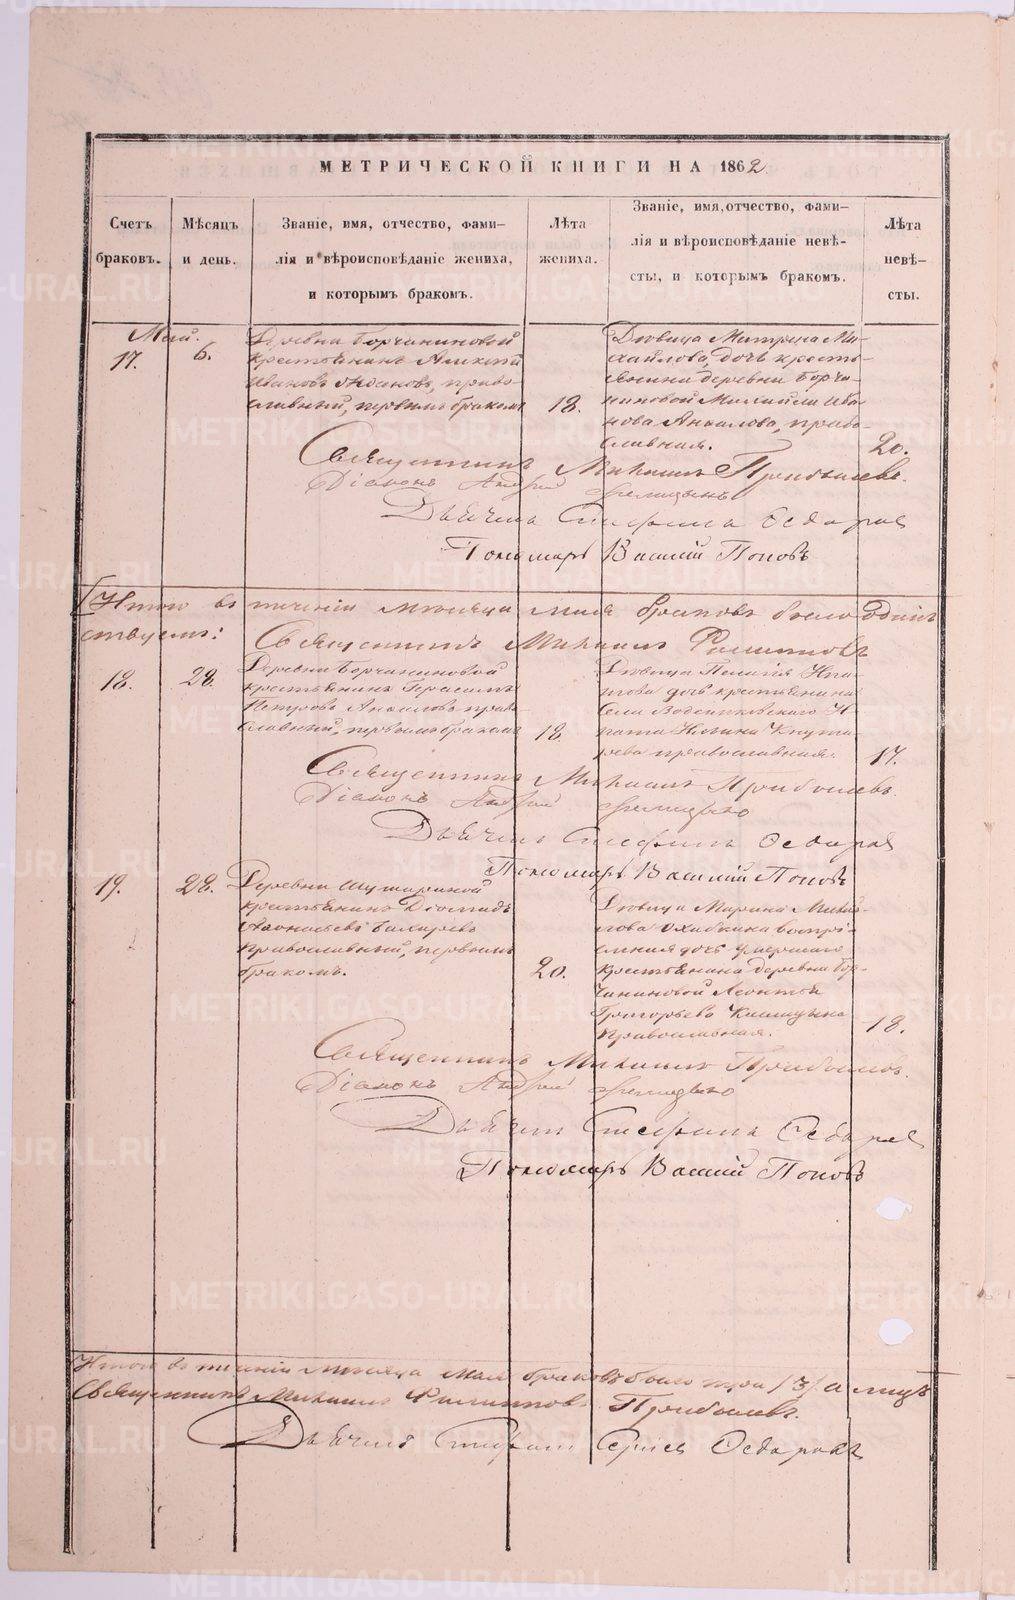 МЕТРИЧЕСКОЙ КНИГИ НА 1862
Счетъ браковъ.
Мѣсяцъ и день.
Званіе, имя, отчество, фами-
лія и вѣроисповѣданіе жениха,
и которымъ бракомъ.
Лѣта жениха.
Званіе, имя, отчество, фами-
лія и вѣроисповѣданіе невѣ-
сты, и которымъ бракомъ.
Лѣта невѣ-
сты.
Май.
17.
6.
Деревни Борчаниновой
крестьянинъ Алексѣй
Ивановъ, право-
славный, первымъ бракомъ
18.
Дѣвица Матрена Ми-
хайлова, дочь кресть-
янина деревни Борча-
ниновой Михаила Ива-
нова, право-
славная.
20.
Священникъ Михаилъ Прибылевъ.
Діаконъ Андрей
Дьячекъ Стефанъ
Пономарь Василій Поповъ
Итого въ теченіи мѣсяца мая браковъ было одинъ
Священникъ Михаилъ Филиповъ
18.
28.
Деревни Борчаниновой
крестьянинъ Герасимъ
Петровъ право-
славный, первымъ бракомъ
18
Дѣвица Пелагія Игна-
това дочь крестьянина
Села
православная.
17.
Священникъ Михаилъ Прибылевъ.
Діаконъ Андрей
Дьячекъ Стефанъ
Пономарь Василій Поповъ
19.
28.
Деревни
крестьянинъ Діомидъ
православный, первымъ
бракомъ.
20.
Дѣвица Марина Михай-
лова воспрі-
емная дочь умершаго
крестьянина деревни Бор-
чаниновой Леонтья
Григорьева
православная.
18.
Священникъ Михаилъ Прибылевъ.
Діаконъ Андрей
Дьячекъ Стефанъ
Пономарь Василій Поповъ
Итого въ теченіи мѣсяца мая браковъ было три /3/ а лицъ
Священникъ Михаилъ Филиповъ Прибылевъ.
Дьячекъ Стефанъ
METRIKI.GASO-URAL.RU